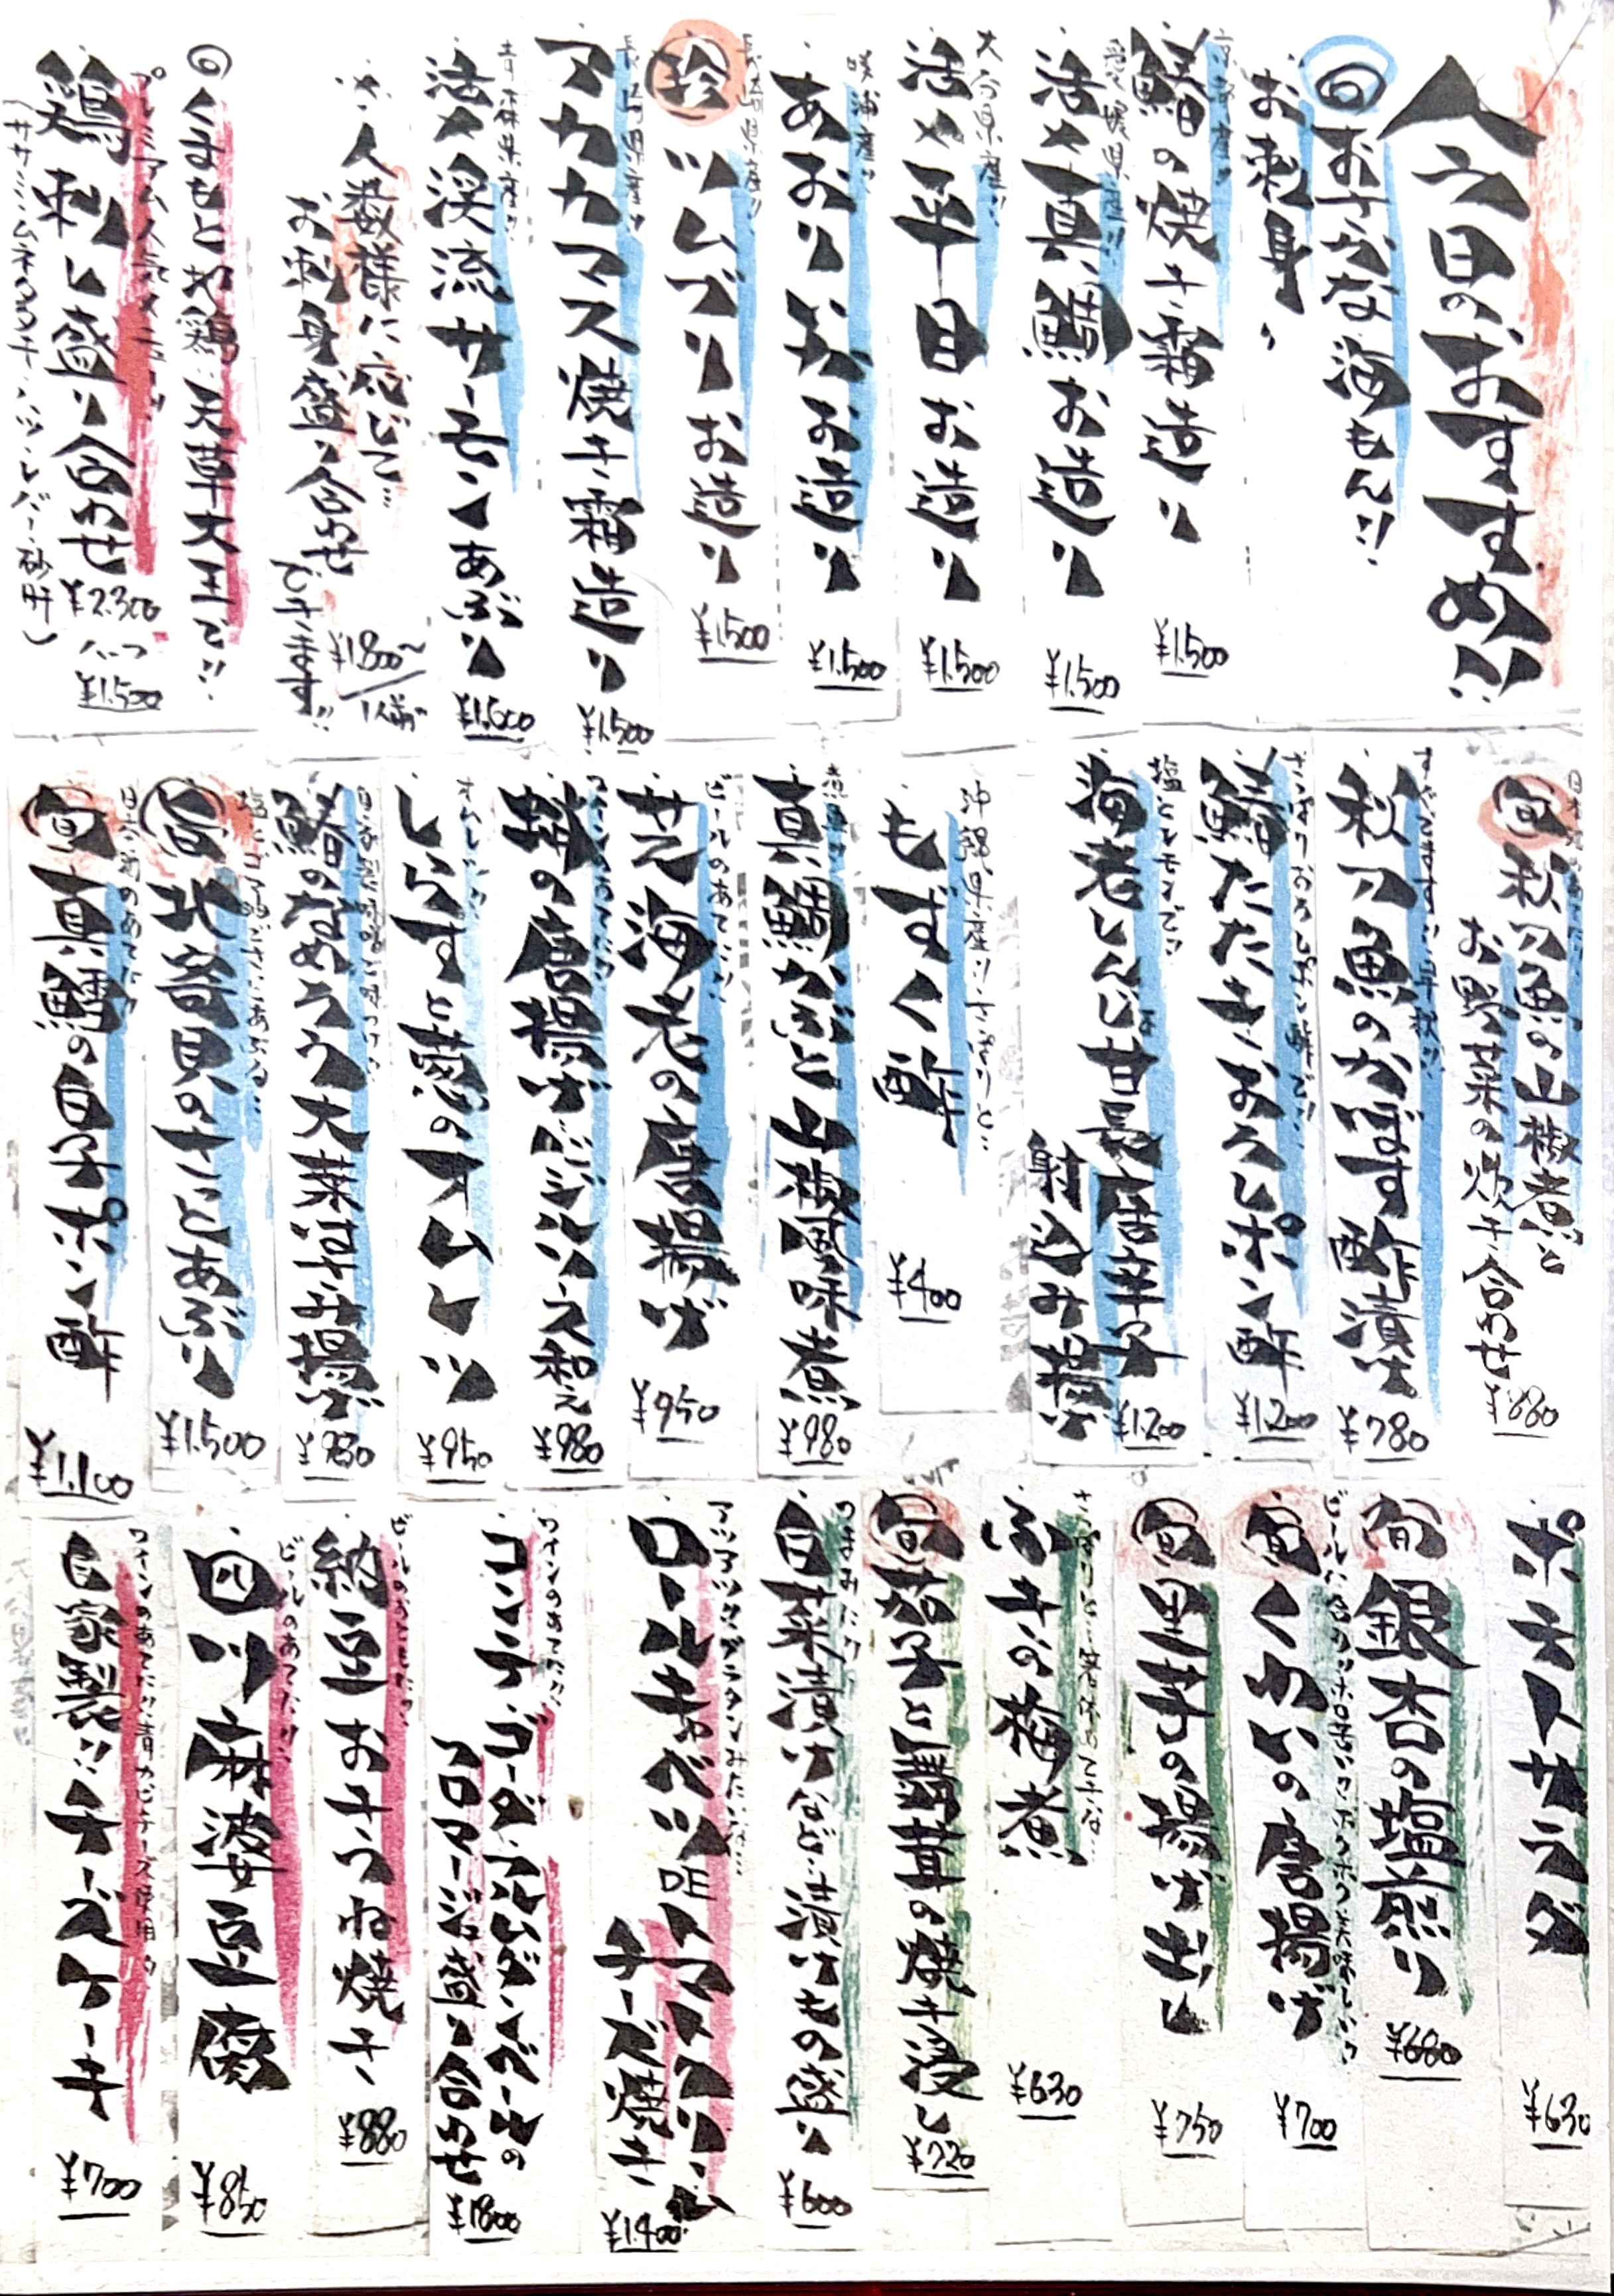 今日のおすすめ!!
◎おさかな海もん!!
お刺身、
京都産!!
鰆の焼き霜造り
¥1.500
愛媛県産!!
活〆真鯛お造り
¥1.500
大分県産!!
活〆平目お造り
¥1.500
あおりいかお造り
¥1.500
長崎県産!!
珍 ツムブリお造り
¥1.500
長崎県産!!
アカカマス焼き霜造り
¥1.500
青森県産!!
活〆渓流サーモンあぶり
¥1.600
人数様に応じて…
お刺身盛り合わせ
できます!!
¥1.800~/1人前
◎くまもと地鶏 天草大王で!!
プレミアム人気メニュー!!
鶏刺し盛り合わせ
¥2.300
ハーフ
¥1.500
(ササミ・ムネ・モモ・ハツ・レバー・砂肝)
旬 秋刀魚の山椒煮と
お野菜の炊き合わせ
¥880
秋刀魚のかぼす酢漬け
¥780
鯖たたき おろしポン酢
¥1200
塩とレモンで!!
海老しんじょ甘長唐辛子
射込み揚げ
¥1200
沖縄県産!!さっぱりと…
もずく酢
¥400
真鯛かぶと山椒風味煮
¥980
ビールのあてに!!
芝海老の唐揚げ
¥950
ワインのあてに!!
蛸の唐揚げバジルソース和え
¥980
しらすと葱のオムレツ
¥950
鰆のなめろう大葉はさみ揚げ
旨 北寄貝のさっとあぶり
¥1.500
旬 真鱈の白子ポン酢
¥1.100
ポテトサラダ
¥630
旬 銀杏の塩煎り
¥680
旬 くわいの唐揚げ
¥700
旬 里芋の揚げ出し
¥750
ふきの梅煮
¥630
旬 茄子と舞茸の焼き浸し
¥720
つまみに!!
白菜漬けなど…漬けもの盛り
¥600
アツアツグラタンみたいな…
ロールキャベツDEトマトクリーム
チーズ焼き
¥1.400
ワインのあてに!!
コンテ・ゴーダ・アムダンベールの
フロマージュ盛り合わせ
¥1800
納豆おきつね焼き
¥880
ビールのあてに!!
四川麻婆豆腐
¥850
ワインのあてに!!青カビチーズ使用!!
自家製!!チーズケーキ
¥700